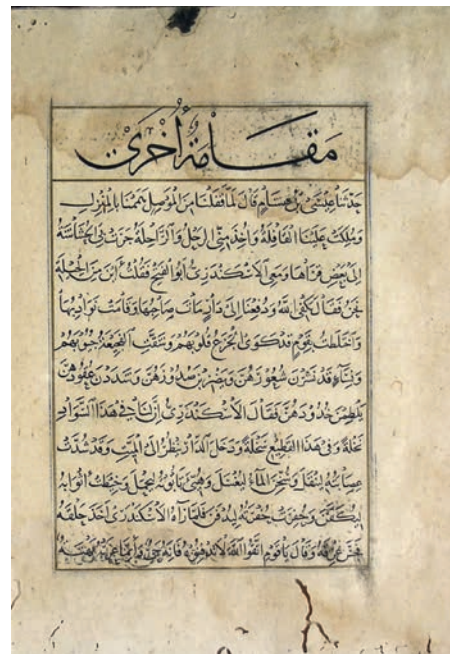 مقامة أخرى
حدثنا عيسى بن هشام قال لما قفلنا من الموصل هممنا بالمنزل
وملكت علينا القافلة وأخذ مني الرحل والراحلة جرت بي الحشاشة
إلى بعض قراها ومعي الاسكندري أبو الفتح فقلت أين من الحيلة
نحن فقال يكفي الله ودفعنا إلى دار مات صاحبها وقامت نوادبها
واختلطت بقوم قد كوى الجزع قلوبهم وشقت الفجيعة جيوبهم
ونساء قد نشرن شعورهن ويضربن صدورهن وشددن عقودهن
يلطمن خدودهن فقال الاسكندري إن لنا في هذا السواد
نخلة وفي هذا القطيع سخلة ودخل الدار ينظر إلى الميت وقد شدت
عصابته لينقل وسخن الماء ليغسل وهيئ تابوته ليحمل وخيطت أثوابه
ليكفن وحفرت حفرته ليدفن فلما رآه الاسكندري أخذ حلقه
فجس عرقه وقال يا قوم اتقوا الله لا تدفنوه فإنه حي وإنما عرته بهتة